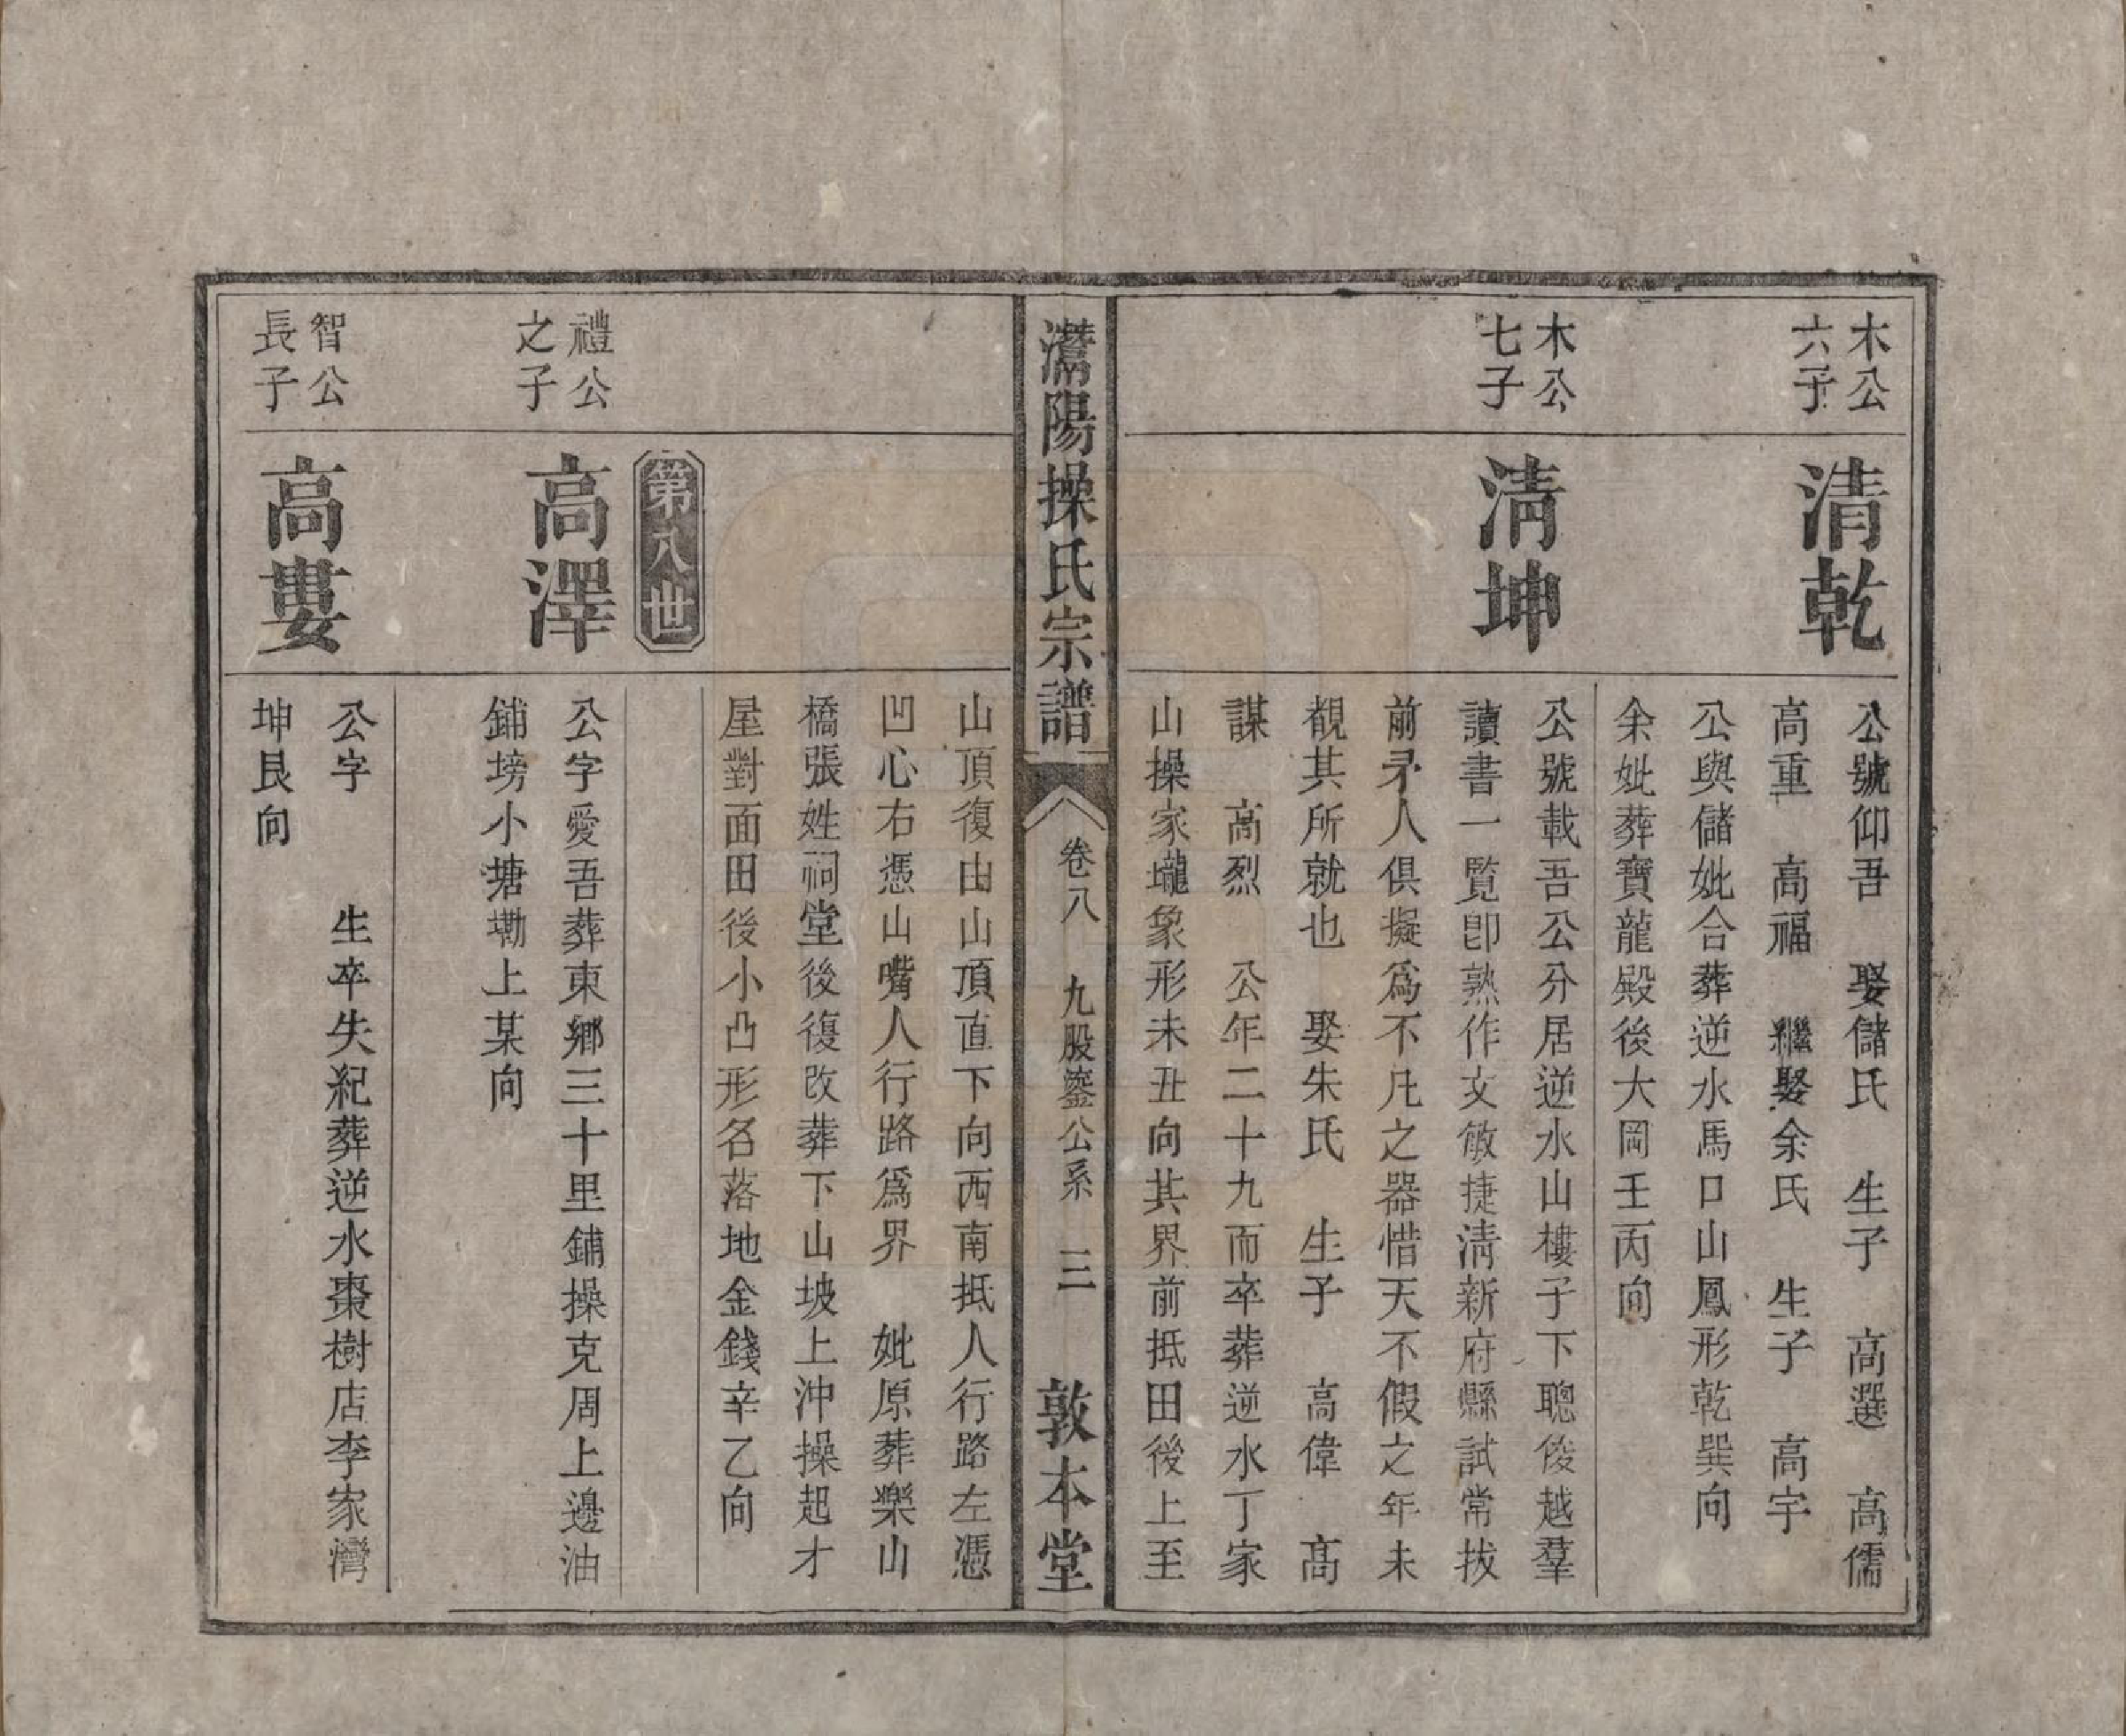 木公
六子
清乾
公號仰吾　娶儲氏　生子　高選　高儒
高重　高福　繼娶余氏　生子　高宇
公與儲妣合葬逆水馬口山鳳形乾巽向
余妣葬寶龍殿後大岡壬丙向
木公
七子
淸坤
公號載吾公分居逆水山樓子下聰俊越羣
讀書一覧卽熟作文敏捷淸新府縣試常拔
前矛人俱擬爲不凡之器惜天不假之年未
覩其所就也　娶朱氏　生子　高偉　高
謀　高烈　公年二十九而卒葬逆水丁家
山操家壠象形未丑向其界前抵田後上至
灊陽操氏宗譜
卷八　九股鎣公系　三
敦本堂
山頂復由山頂直下向西南抵人行路左憑
凹心右憑山嘴人行路爲界　妣原葬樂山
橋張姓祠堂後復改葬下山坡上沖操起才
屋對面田後小凸形名落地金錢辛乙向
第八世
禮公
之子
高澤
公字愛吾葬東鄉三十里鋪操克周上邊油
鋪塝小塘墈上某向
智公
長子
高婁
公字　　生卒失紀葬逆水棗樹店李家灣
坤艮向